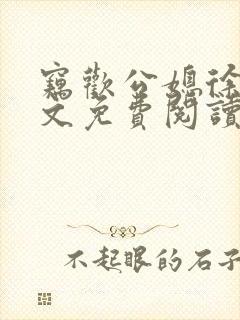 竊歡公媳徐
文免費閱讀
不起眼的石子